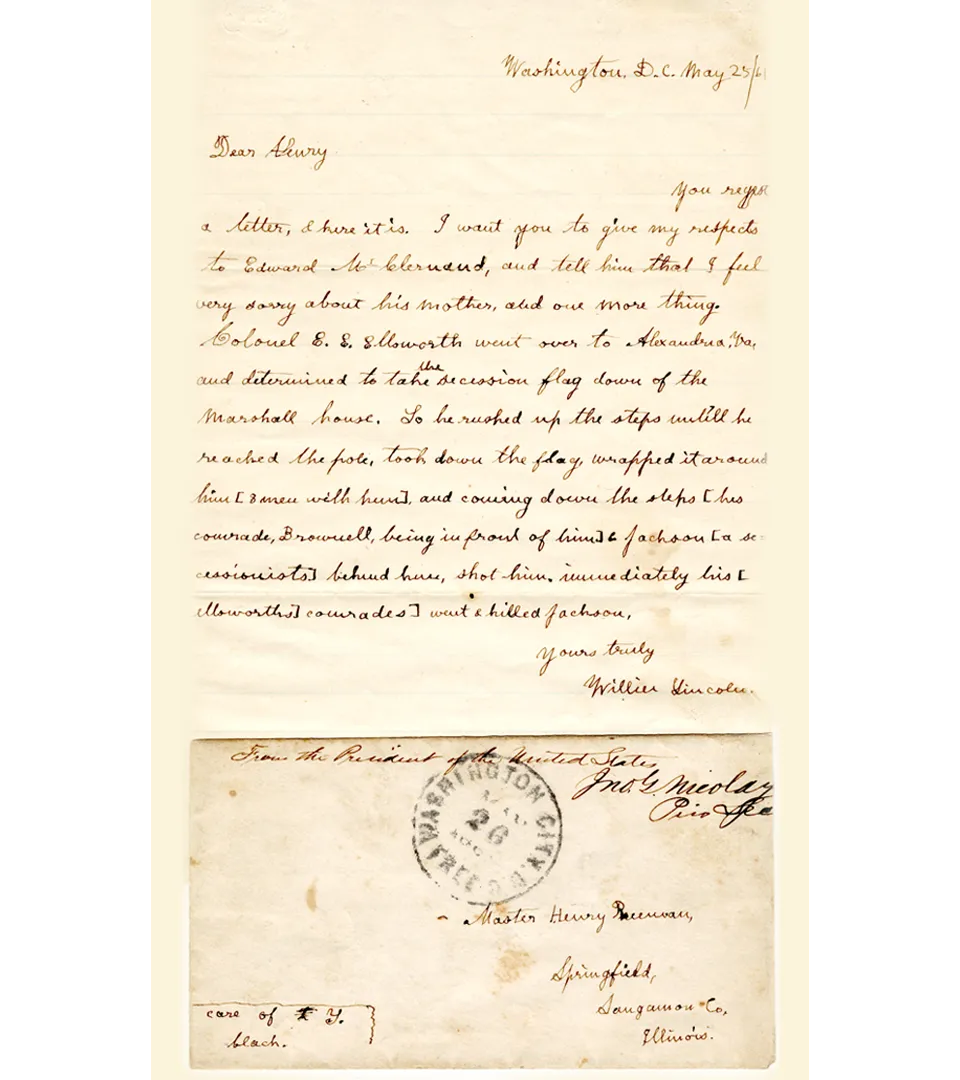 Washington, D.C. May 25/61
Dear Henry
You regest
a letter, & here it is. I want you to give my respects
to Edward Mc Clernand, and tell him that I feel
very sorry about his mother, and one more thing.
Colonel E. E. Ellsworth went over to Alexandria, Va,
and determined to take the secession flag down of the
Marshall house. So he rushed up the steps untill he
reached the pole, took down the flag, wrapped it around
him [8 men with him], and coming down the steps [his
comrade, Brownell, being in front of him] & Jackson [a se-
cessionists] behind him, shot him. immediately his [
ellsworths] comrades] went & killed Jackson,
Yours truly
Willie Lincoln.
From the President of the United States
Jno. G. Nicolay
Priv Sec
WASHINGTON CITY. D.C.
MAY
26
1861
FREE
Master Henry Remann,
Springfield,
Sangamon Co,
Illinois.
care of Y.
black.